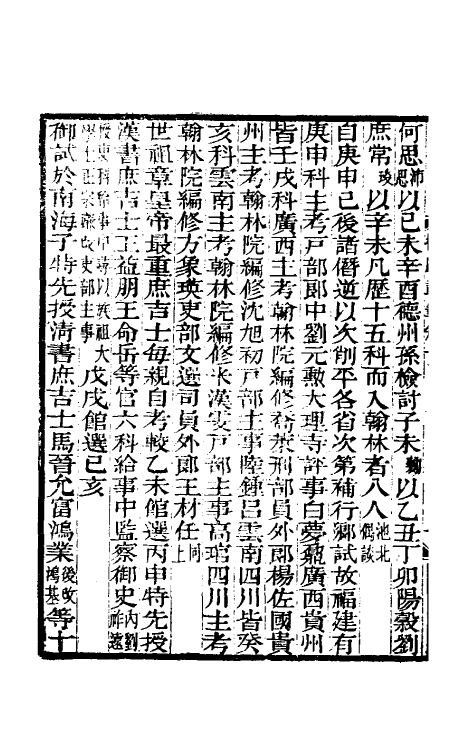 何思沛思以己未辛酉德州孫檢討子未勷以乙丑丁卯陽穀劉
庶常琰以辛未凡歷十五科而入翰林者八人池北偶談
自庚申已後諸僭逆以次削平各省次第補行鄉試故福建有
庚申科主考戶部郎中劉元勳大理寺評事白夢鼐廣西貴州
皆壬戌科廣西主考翰林院編修喬萊刑部員外郎楊佐國貴
州主考翰林院編修沈旭初戶部主事陸鍾呂雲南四川皆癸
亥科雲南主考翰林院編修米漢雯戶部主事高琯四川主考
翰林院編修方象瑛吏部文選司員外郎王材任同上
世祖章皇帝最重庶吉士每親自考較乙未館選丙申特先授
漢書庶吉士王益朋王命岳等官六科給事中監察御史內劉祚遠
授吏科給事中尋以 大
學士 改吏部主事 戊戌館選己亥
御試於南海子特先授淸書庶吉士馬晉允富鴻業後改鴻基等十